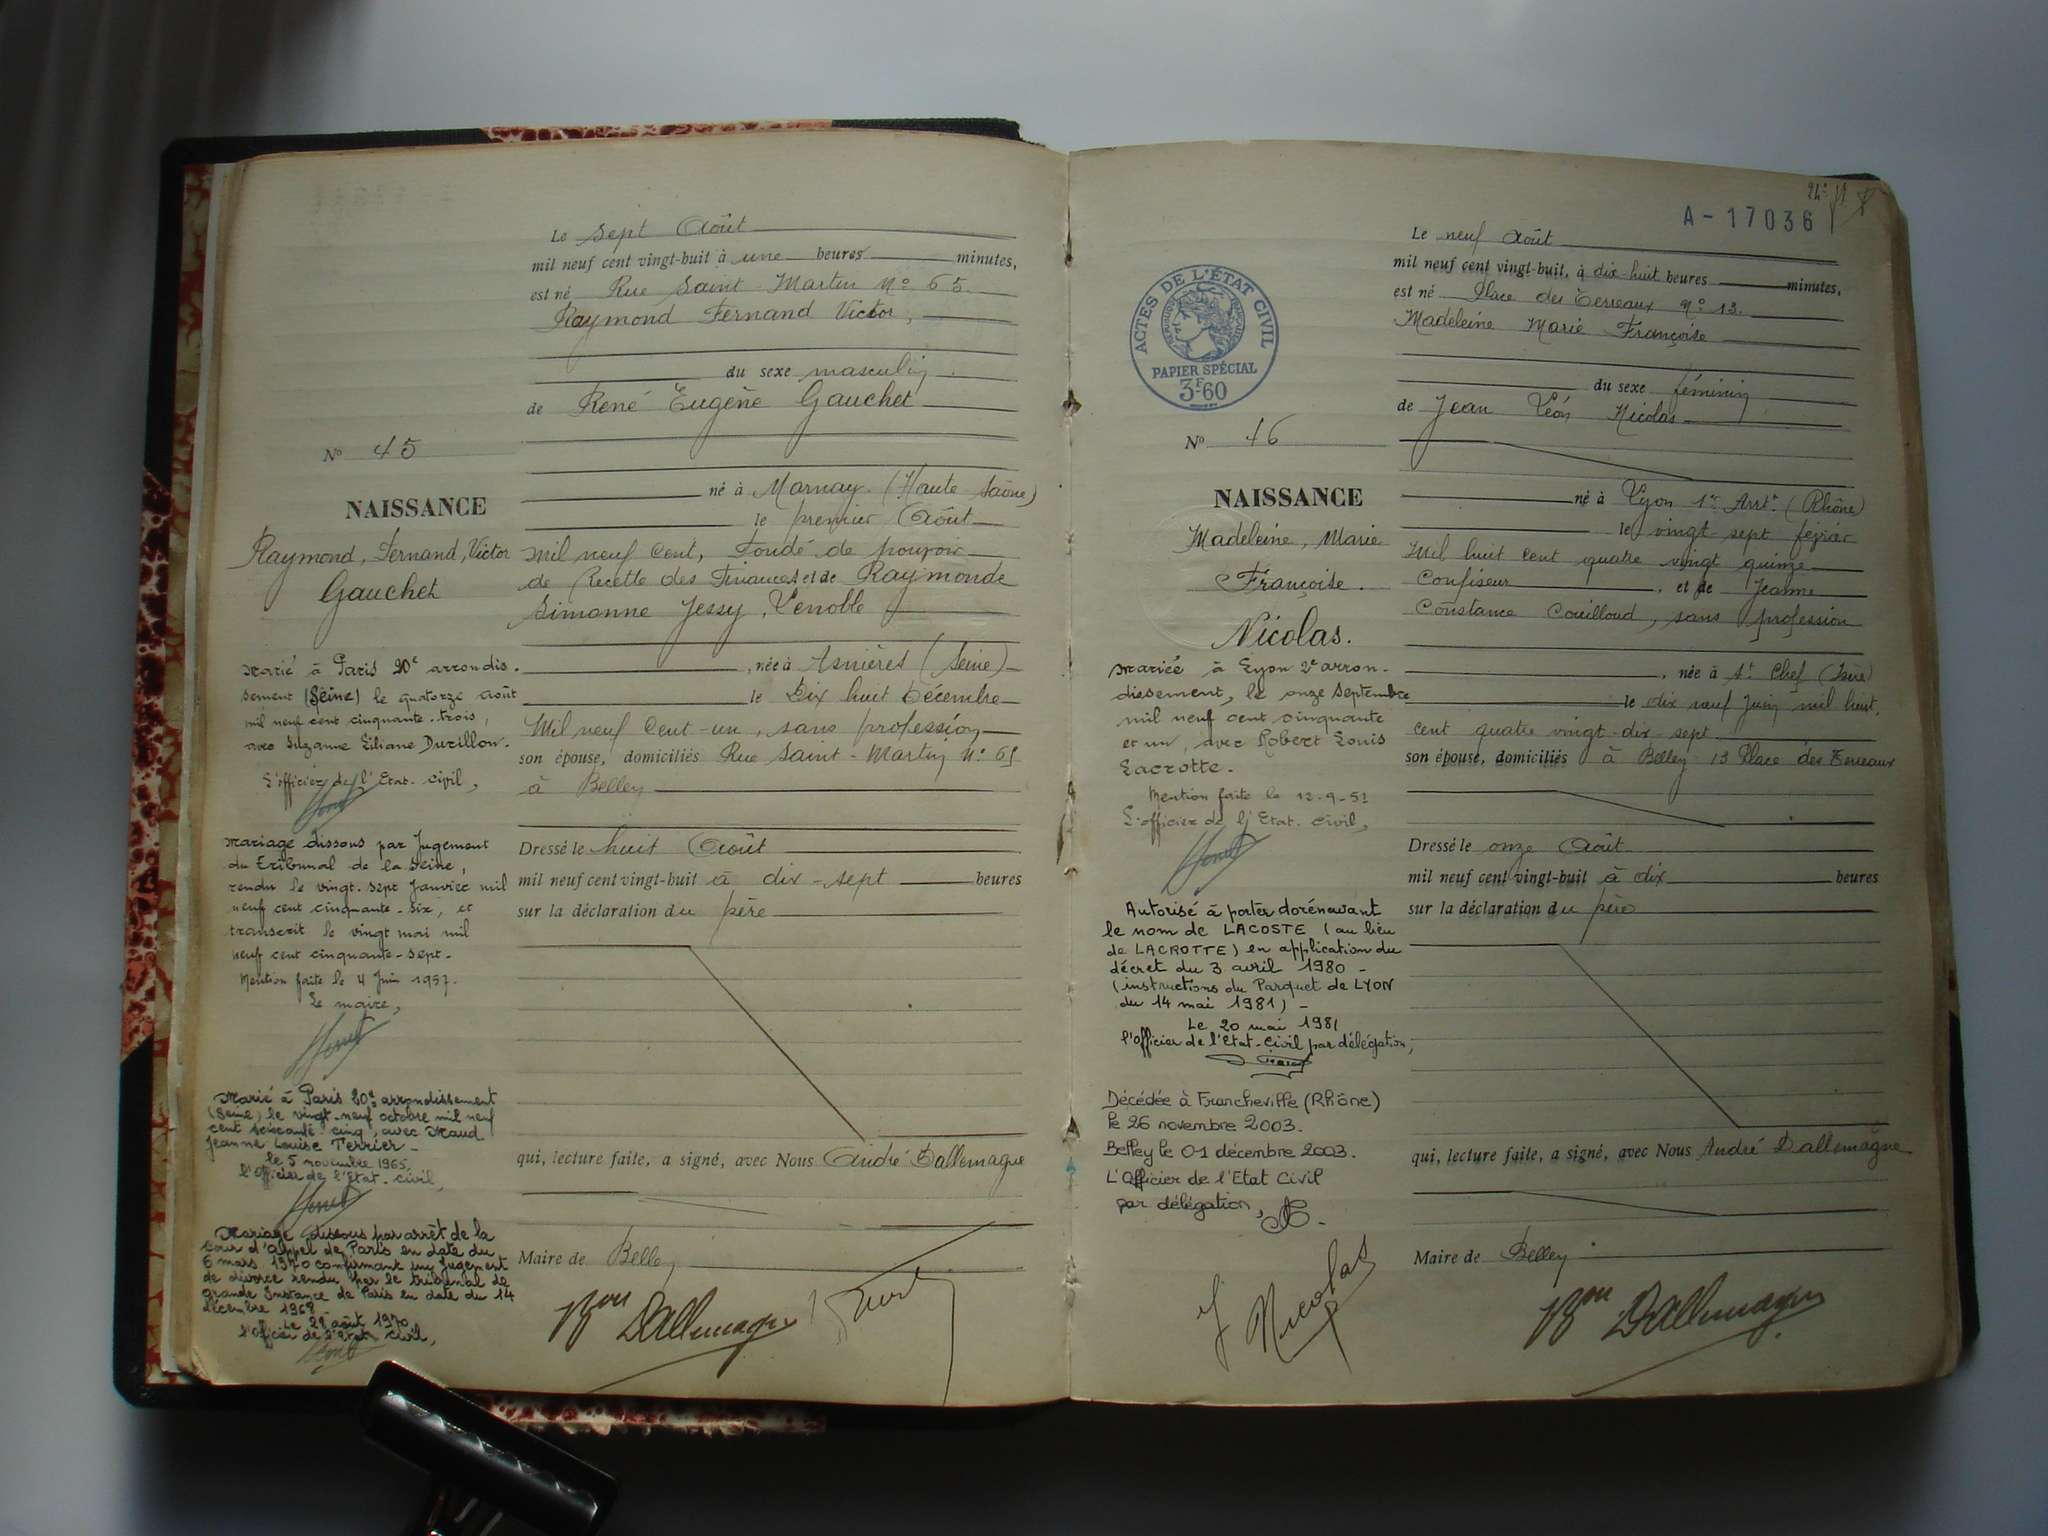 Le sept Août
mil neuf cent vingt-huit à une heures minutes,
est né Rue Saint-Martin N° 65
Raymond Fernand Victor,
du sexe masculin
de René Eugène Gauchet
N° 45
NAISSANCE
Raymond, Fernand, Victor
Gauchet
né à Marnay (Haute Saône)
le premier Août
mil neuf cent, Fondé de pouvoir
de Recette des Finances et de Raymonde
Simonne Jessy Lenoble
, née à Asnières (Seine)
le Dix huit Décembre
Mil neuf cent-un, sans profession
son épouse, domiciliés Rue Saint-Martin N° 65
à Belley
Dressé le huit Août
mil neuf cent vingt-huit à dix-sept heures
sur la déclaration du père
qui, lecture faite, a signé, avec Nous André Dallemagne
Maire de Belley
Bon Dallemagne
Marié à Paris 20e arrondis-
sement (Seine) le quatorze août
mil neuf cent cinquante-trois,
avec Suzanne Liliane Durillon.
L'officier de l'Etat-civil,
Mariage dissous par Jugement
du Tribunal de la Seine,
rendu le vingt-sept Janvier mil
neuf cent cinquante-six, et
transcrit le vingt mai mil
neuf cent cinquante-sept.
Mention faite le 4 Juin 1957.
Le maire,
Marié à Paris 20e arrondissement
(Seine) le vingt-neuf octobre mil neuf
cent soixante-cinq, avec Maud
Jeanne Louise Terrier-
le 5 novembre 1965
l'Officier de l'Etat-civil,
Mariage dissous par arrêt de la
Cour d'Appel de Paris en date du
6 mars 1970 confirmant un Jugement
de divorce rendu par le tribunal de
grande Instance de Paris en date du 14
décembre 1968
Le 29 août 1970
l'Officier de l'Etat civil,
A-17036
Le neuf Août
mil neuf cent vingt-huit, à dix-huit heures minutes,
est né Place des Terreaux N° 13.
Madeleine Marie Françoise
du sexe féminin
de Jean Léon Nicolas
ACTES DE L'ÉTAT CIVIL
RÉPUBLIQUE FRANÇAISE
PAPIER SPÉCIAL
3F60
N° 46
NAISSANCE
Madeleine, Marie
Françoise.
Nicolas.
né à Lyon 1er Arrt (Rhône)
le vingt-sept février
Mil huit cent quatre vingt quinze
Confiseur, et de Jeanne
Constance Couilloud, sans profession
, née à St Chef (Isère)
le dix neuf Juin mil huit
cent quatre vingt-dix-sept
son épouse, domiciliés à Belley 13 Place des Terreaux
Dressé le onze Août
mil neuf cent vingt-huit à dix heures
sur la déclaration du père
qui, lecture faite, a signé, avec Nous André Dallemagne
Maire de Belley
J Nicolas
Bon Dallemagne
Mariée à Lyon 2e arron-
dissement, le onze septembre
mil neuf cent cinquante
et un, avec Robert Louis
Lacrotte.
Mention faite le 12-9-51
L'officier de l'Etat-civil,
Autorisé à porter dorénavant
le nom de LACOSTE (au lieu
de LACROTTE) en application du
décret du 3 avril 1980 -
(instructions du Parquet de LYON
du 14 mai 1981) -
Le 20 mai 1981
l'Officier de l'Etat-civil par délégation,
Décédée à Francheville (Rhône)
le 26 novembre 2003.
Belley le 01 décembre 2003.
L'Officier de l'Etat Civil
par délégation,